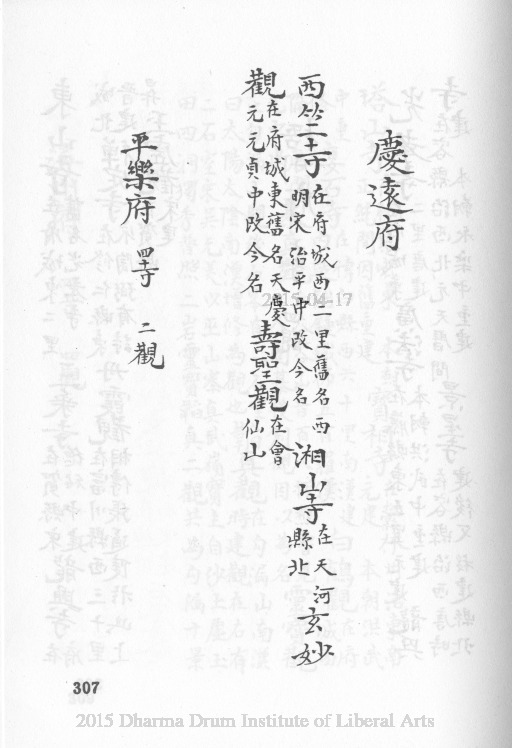 慶遠府
西竺寺在府城西二里舊名西明宋治平中改今名湘山寺在天河縣北玄妙
觀在府城東舊名天慶元元貞中改今名壽聖觀在會仙山
平樂府 四寺 二觀
2015-04-17
307
2015 Dharma Drum Institute of Liberal Arts